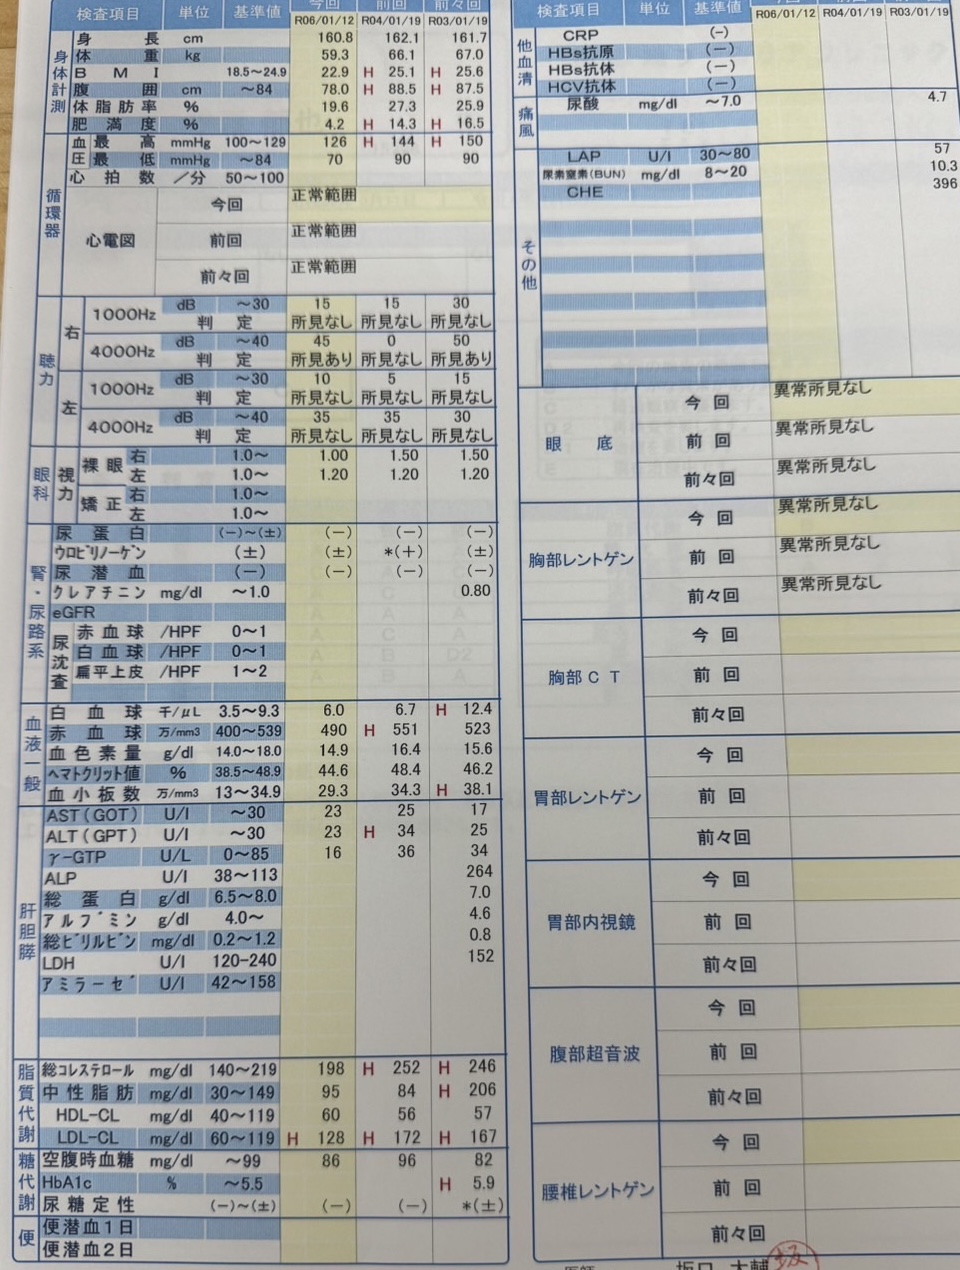 検査項目 単位 基準値 今回 前回 前々回
R06/01/12 R04/01/19 R03/01/19
身体計測
身長 cm 160.8 162.1 161.7
体重 kg 59.3 66.1 67.0
BMI 18.5～24.9 22.9 H 25.1 H 25.6
腹囲 cm ～84 78.0 H 88.5 H 87.5
体脂肪率 % 19.6 27.3 25.9
肥満度 % 4.2 H 14.3 H 16.5
循環器
血圧 最高 mmHg 100～129 126 H 144 H 150
最低 mmHg ～84 70 90 90
心拍数 /分 50～100
心電図 今回 正常範囲
前回 正常範囲
前々回 正常範囲
聴力
右 1000Hz dB ～30 15 15 30
判定 所見なし 所見なし 所見なし
4000Hz dB ～40 45 0 50
判定 所見あり 所見なし 所見あり
左 1000Hz dB ～30 10 5 15
判定 所見なし 所見なし 所見なし
4000Hz dB ～40 35 35 30
判定 所見なし 所見なし 所見なし
眼科 視力
裸眼 右 1.0～ 1.00 1.50 1.50
左 1.0～ 1.20 1.20 1.20
矯正 右 1.0～
左 1.0～
腎・尿路系
尿蛋白 (－)～(±) (－) (－) (－)
ウロビリノーゲン (±) (±) *(＋) (±)
尿潜血 (－) (－) (－) (－)
クレアチニン mg/dl ～1.0 0.80
eGFR
尿沈査
赤血球 /HPF 0～1
白血球 /HPF 0～1
扁平上皮 /HPF 1～2
血液一般
白血球 千/μL 3.5～9.3 6.0 6.7 H 12.4
赤血球 万/mm3 400～539 490 H 551 523
血色素量 g/dl 14.0～18.0 14.9 16.4 15.6
ヘマトクリット値 % 38.5～48.9 44.6 48.4 46.2
血小板数 万/mm3 13～34.9 29.3 34.3 H 38.1
肝胆膵
AST(GOT) U/l ～30 23 25 17
ALT(GPT) U/l ～30 23 H 34 25
γ-GTP U/L 0～85 16 36 34
ALP U/l 38～113 264
総蛋白 g/dl 6.5～8.0 7.0
アルブミン g/dl 4.0～ 4.6
総ビリルビン mg/dl 0.2～1.2 0.8
LDH U/l 120-240 152
アミラーゼ U/l 42～158
脂質代謝
総コレステロール mg/dl 140～219 198 H 252 H 246
中性脂肪 mg/dl 30～149 95 84 H 206
HDL-CL mg/dl 40～119 60 56 57
LDL-CL mg/dl 60～119 H 128 H 172 H 167
糖代謝
空腹時血糖 mg/dl ～99 86 96 82
HbA1c % ～5.5 H 5.9
尿糖定性 (－)～(±) (－) (－) *(±)
便
便潜血1日
便潜血2日
検査項目 単位 基準値 今回 前回 前々回
R06/01/12 R04/01/19 R03/01/19
他血清
CRP (－)
HBs抗原 (－)
HBs抗体 (－)
HCV抗体 (－)
痛風
尿酸 mg/dl ～7.0 4.7
その他
LAP U/l 30～80 57
尿素窒素(BUN) mg/dl 8～20 10.3
CHE 396
眼底 今回 異常所見なし
前回 異常所見なし
前々回 異常所見なし
胸部レントゲン 今回 異常所見なし
前回 異常所見なし
前々回 異常所見なし
胸部CT 今回
前回
前々回
胃部レントゲン 今回
前回
前々回
胃部内視鏡 今回
前回
前々回
腹部超音波 今回
前回
前々回
腰椎レントゲン 今回
前回
前々回
医師 坂口 大輔 坂